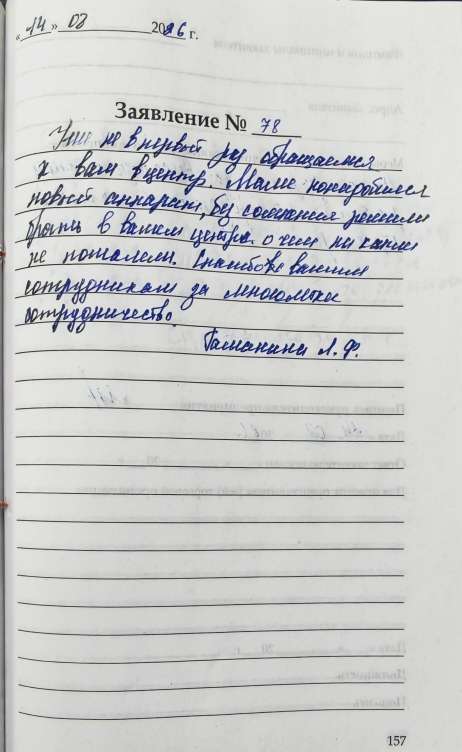 «14» 03 2026 г.
Заявление № 78
Уже не в первый раз обращаемся
к вам в центр. Маме понадобился
новый аппарат, без сомнения решили
брать в вашем центре о чем ни капли
не пожалели. Спасибо вашим
сотрудникам за многолетнее
сотрудничество
Гаманина Л. Ф.
157